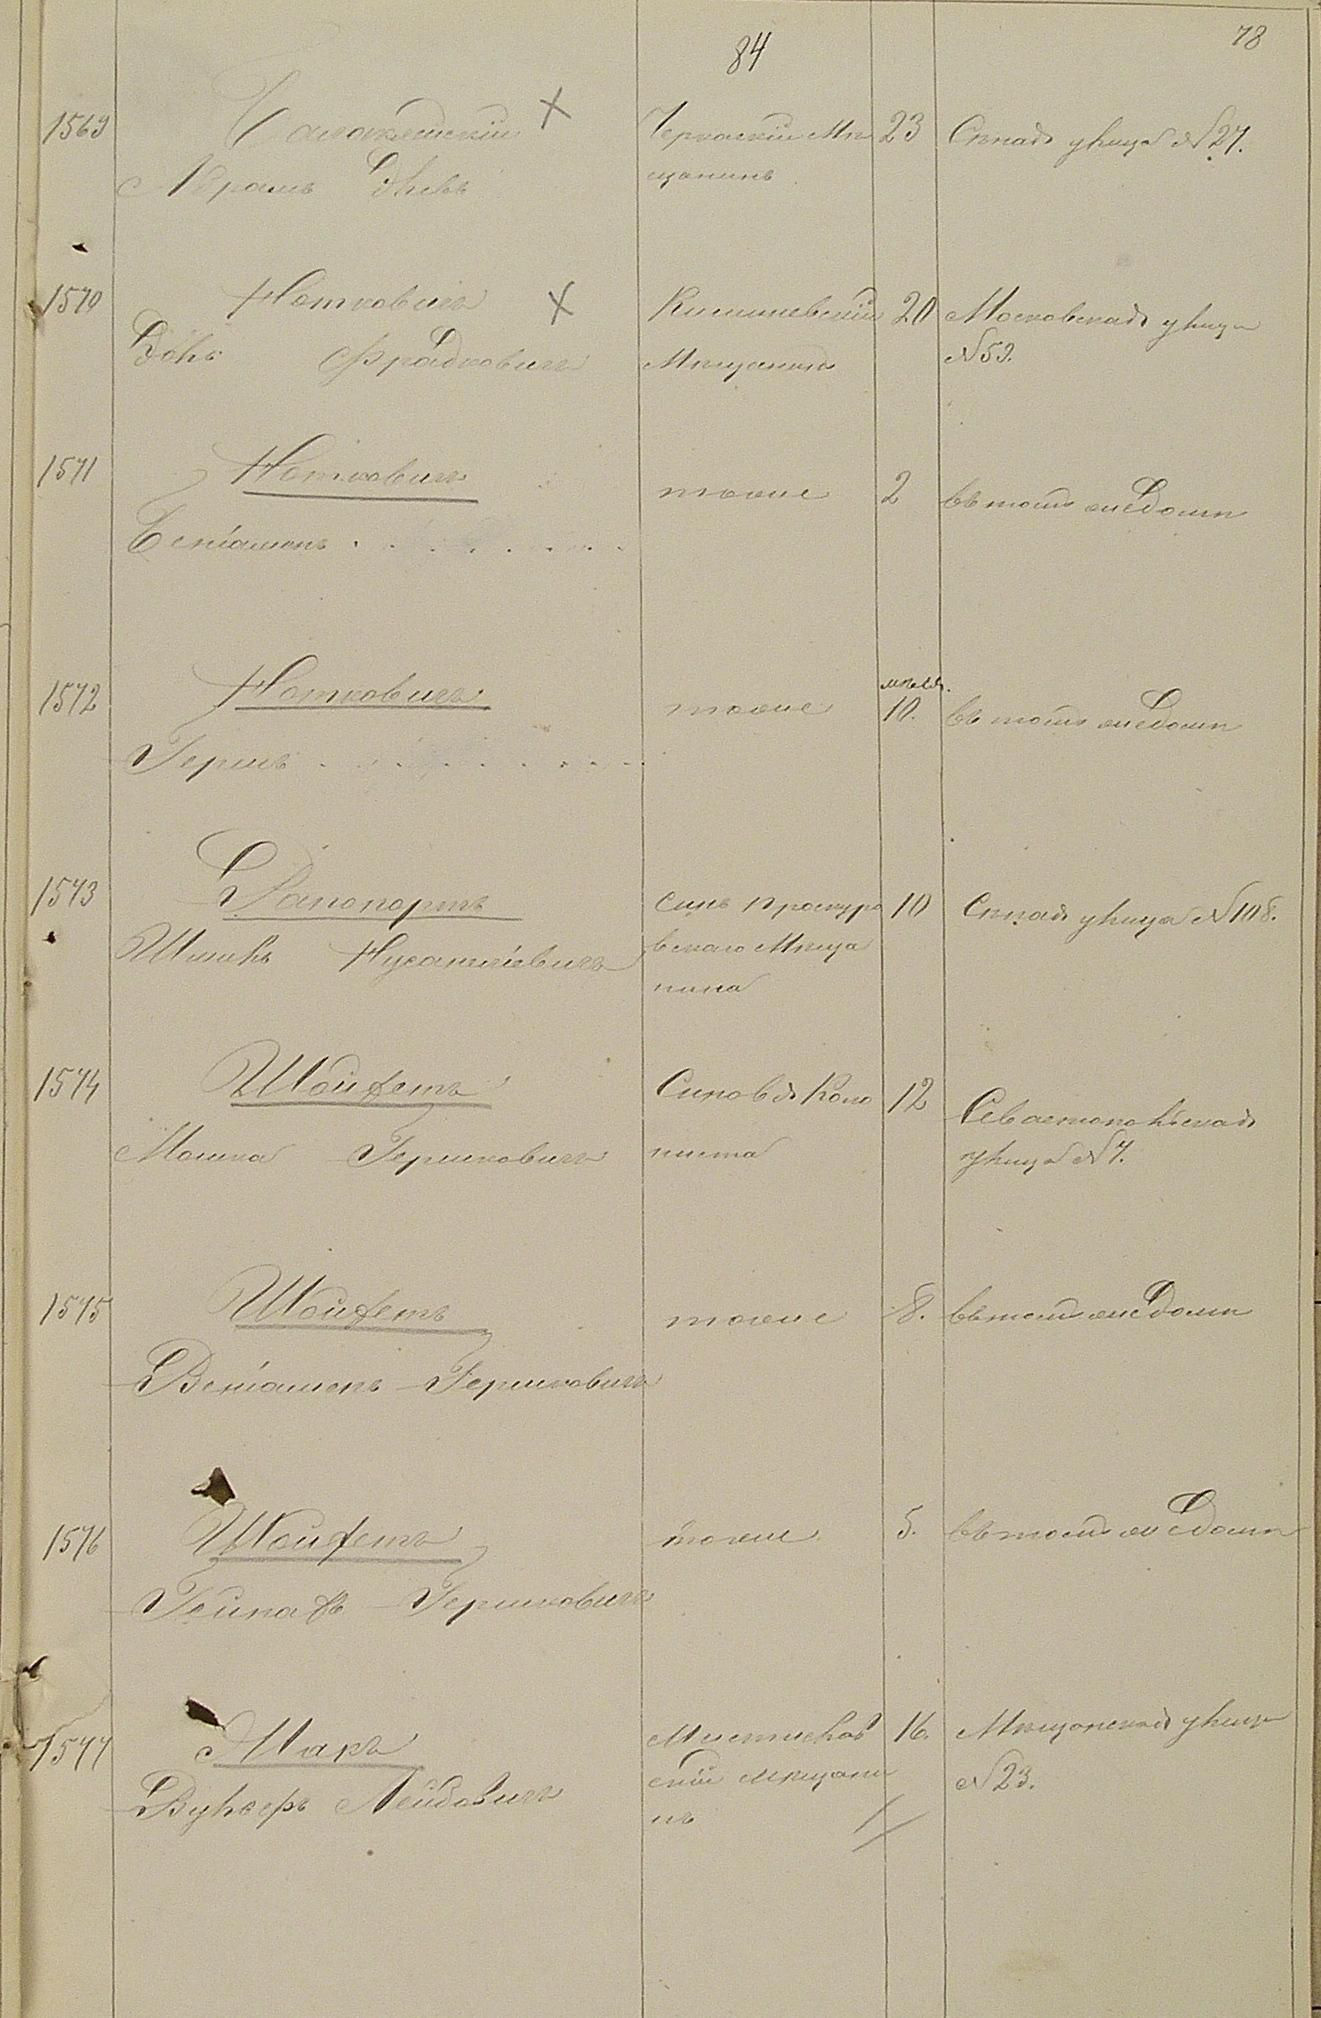 84
78
1569
Абрамъ
Черкаскій Мѣ
щанинъ
23
Степная улица №27.
1570
Нотковичъ
Фрадковичъ
Кишиневскій
Мѣщанинъ
20
Московская улица
№53.
1571
Нотковичъ
Беніаменъ
тоже
2
въ томъ же домѣ
1572
Нотковичъ
Гершъ
тоже
мѣсяц.
10.
въ томъ же домѣ
1573
Рапопортъ
сынъ Проскуро
вскаго Мѣща
нина
10
Степная улица №108.
1574
Шойфетъ
Мошка Гершковичъ
Сыновья Коло
ниста
12
Севастопольская
улица №7.
1575
Шойфетъ
Веніаменъ Гершковичъ
тоже
8.
въ томъ же домѣ
1576
Шойфетъ
Гершковичъ
тоже
5.
въ томъ же домѣ
1577
Вульфъ Лейбовичъ
скій мѣщани
нъ
16.
Мѣщанская улица
№23.